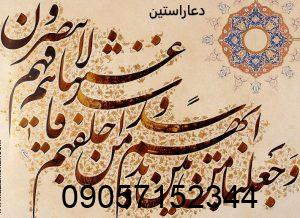 دعاراستین
وجعلنا من بین ایدیهم سدا و من خلفهم سدا فاغشیناهم فهم لا یبصرون
09057152344